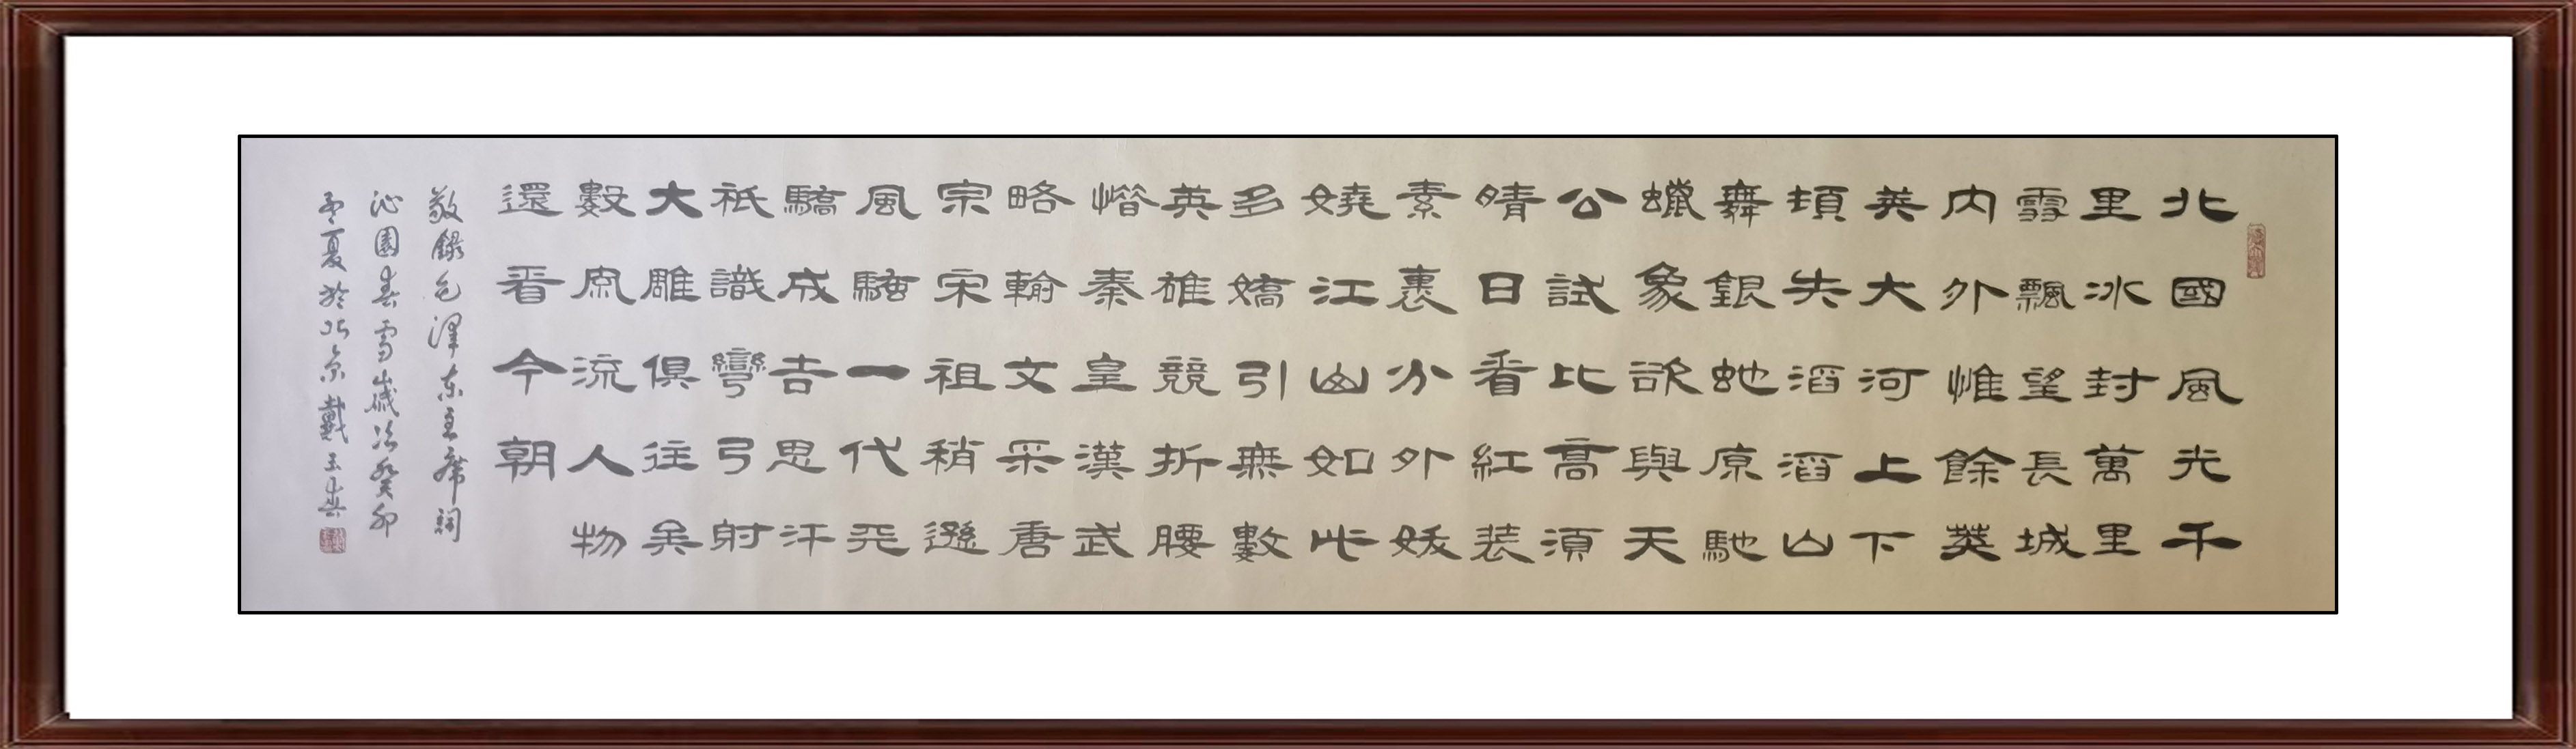 北國風光千
里冰封萬里
雪飄望長城
内外惟餘莽
莽大河上下
頓失滔滔山
舞銀蛇原馳
蠟象欲與天
公試比高須
晴日看紅装
素裹分外妖
嬈江山如此
多嬌引無數
英雄競折腰
惜秦皇漢武
略輸文采唐
宗宋祖稍遜
風騷一代天
驕成吉思汗
祇識彎弓射
大雕俱往矣
數風流人物
還看今朝
敬錄毛澤東主席詞
沁園春雪歲次癸卯
孟夏於北京戴玉